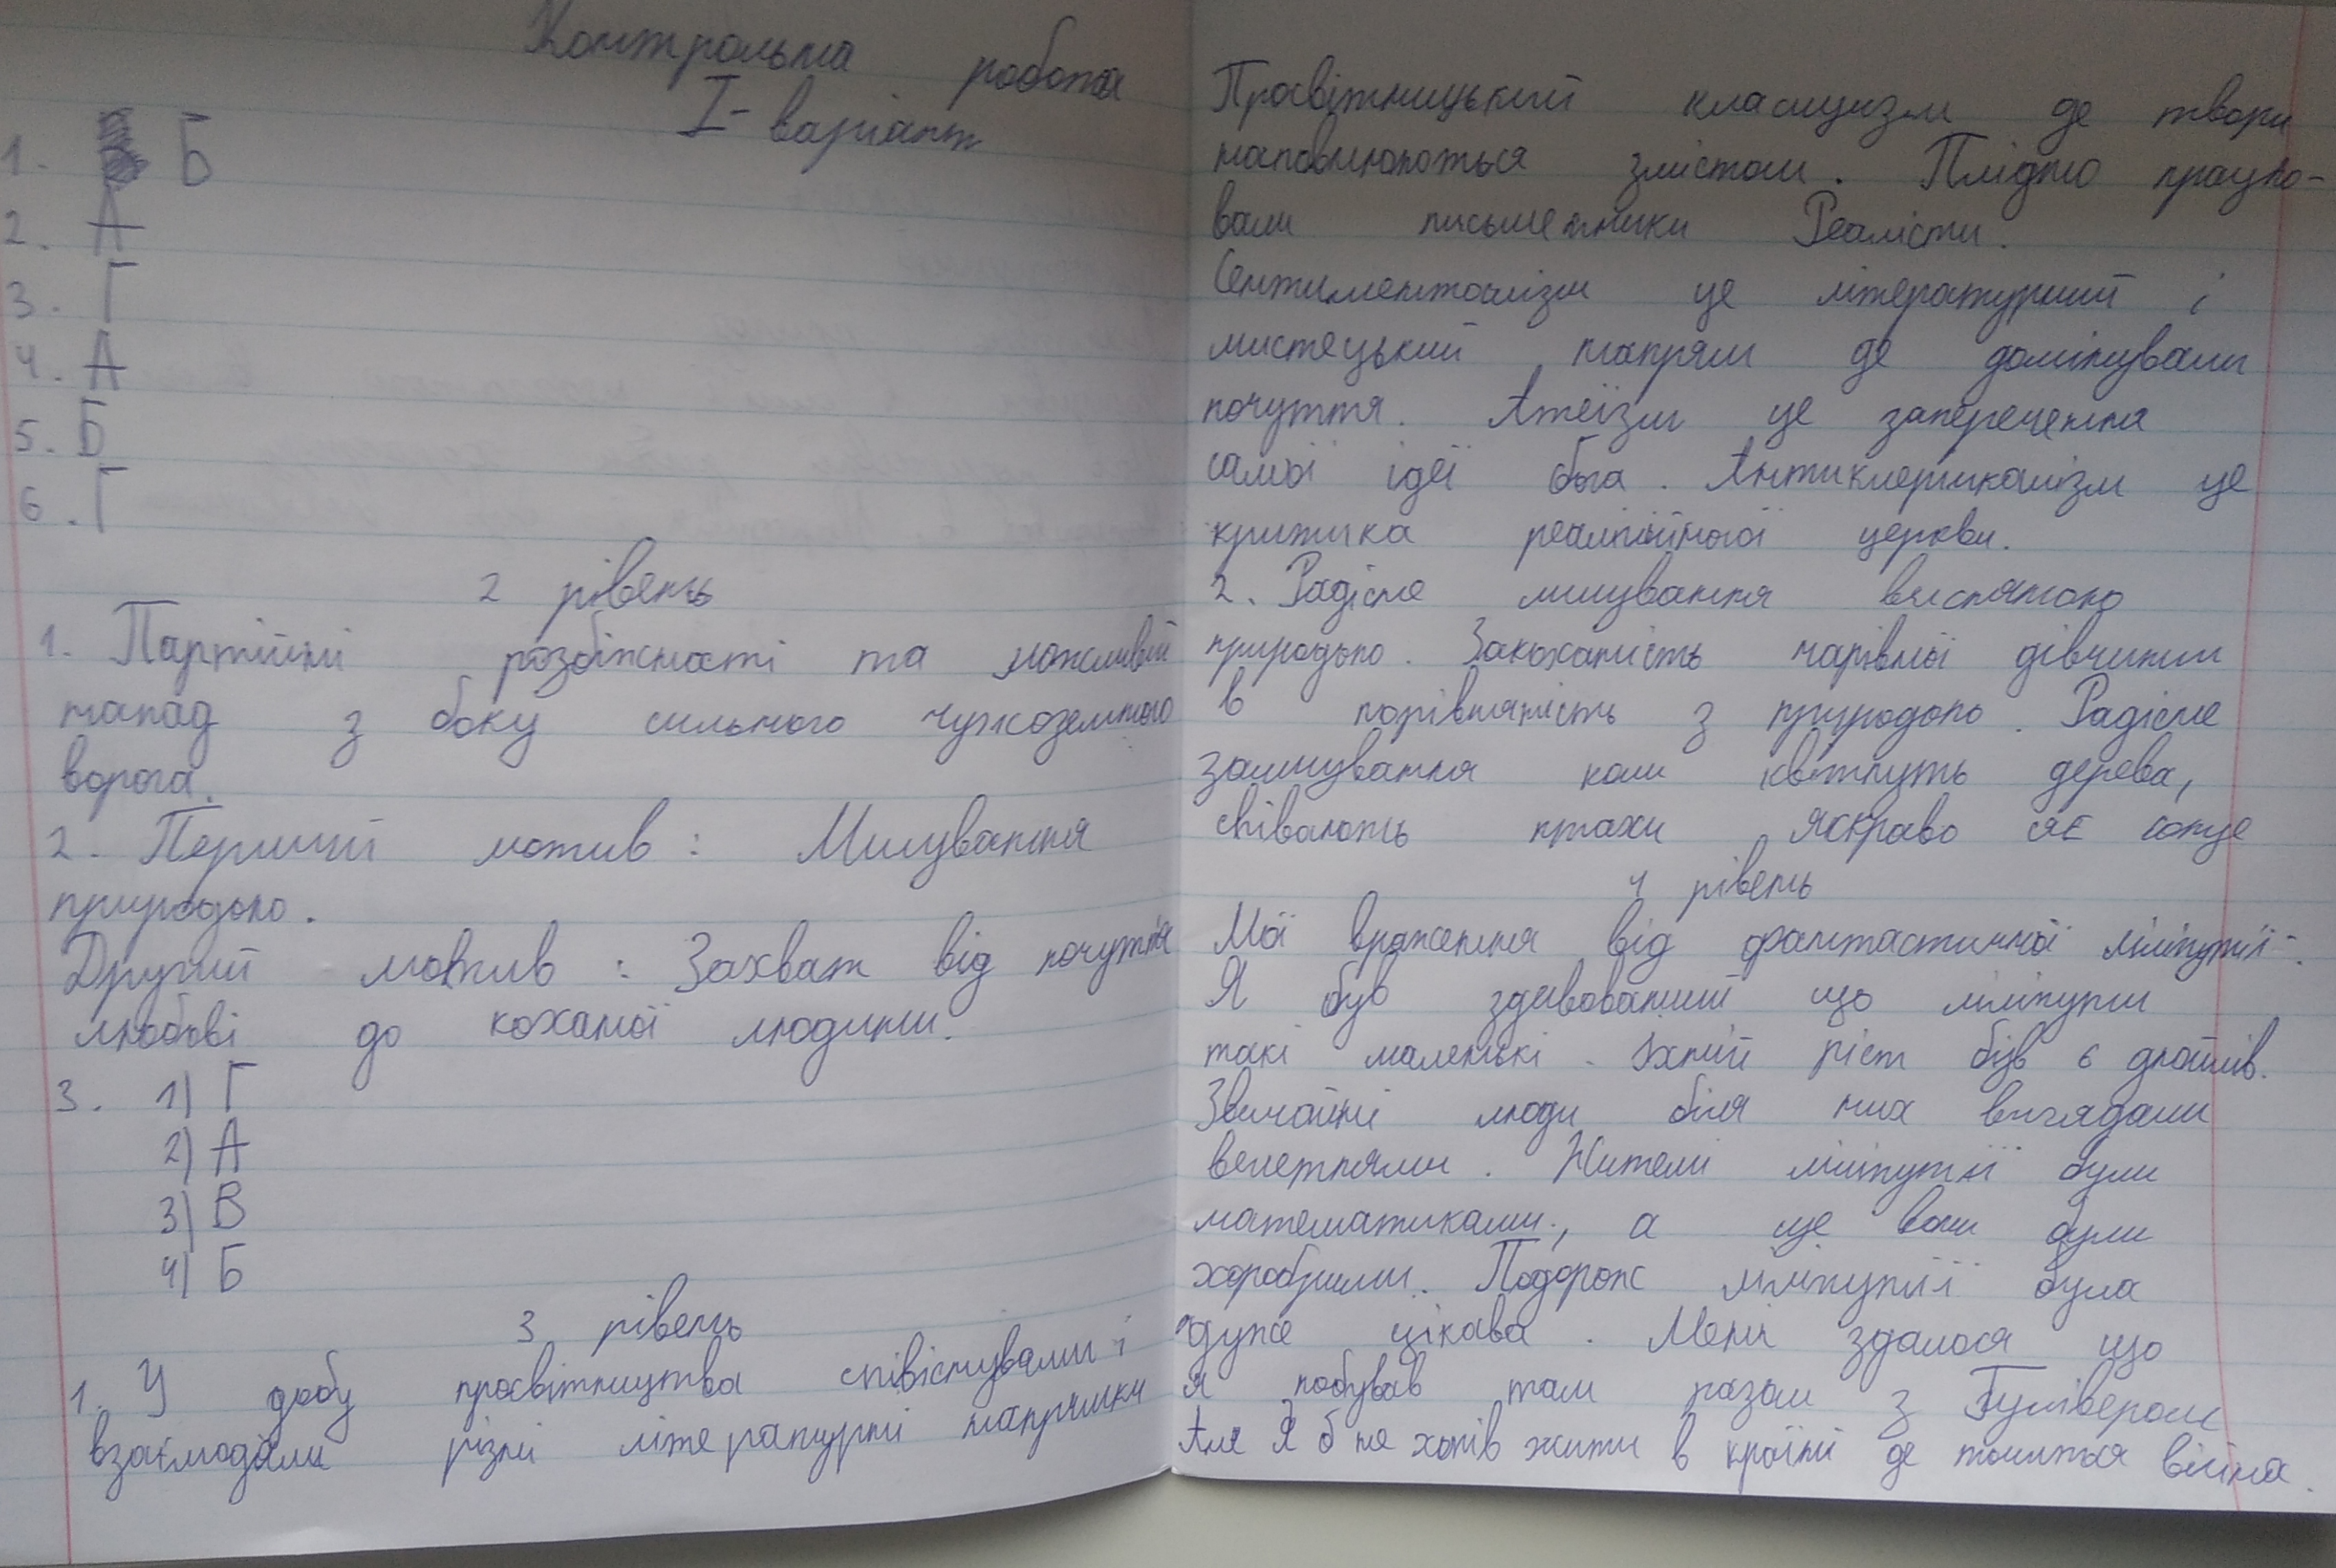 Контрольна робота
I- варіант
1. Б
2. А
3. Г
4. А
5. Б
6. Г
2 рівень
1. Партійні розбіжності та можливий
напад з боку сильного чужоземного
ворога.
2. Перший мотив: Милування
природою.
Другий мотив: Захват від почуття
любові до коханої людини.
3. 1) Г
2) А
3) В
4) Б
3 рівень
1. У добу просвітництва співіснували і
взаємодіяли різні літературні напрямки
Просвітницький класицизм де твори
наповнюються змістом. Плідно працю-
вали письменники Реалісти.
Сентименталізм це літературний і
мистецький напрям де домінували
почуття. Атеїзм це заперечення
самої ідеї бога. Антиклерикалізм це
критика церкви.
2. Радісне милування
природою. Закоханість чарівної дівчини
в порівняність з природою. Радісне
замилування коли квітнуть дерева,
співають птахи яскраво сяє сонце
4 рівень
Мої враження від фантастичної ліліпутії.
Я був здивований що ліліпути
такі маленькі. Їхній ріст був 6 дюймів.
Звичайні люди біля них виглядали
велетнями. Жителі ліліпутії були
математиками, а ще вони були
хоробрими. Подорож ліліпутії була
дуже цікава. Мені здалося що
я побував там разом з Гулівером
Але Я б не хотів жити в країні де точиться війна.